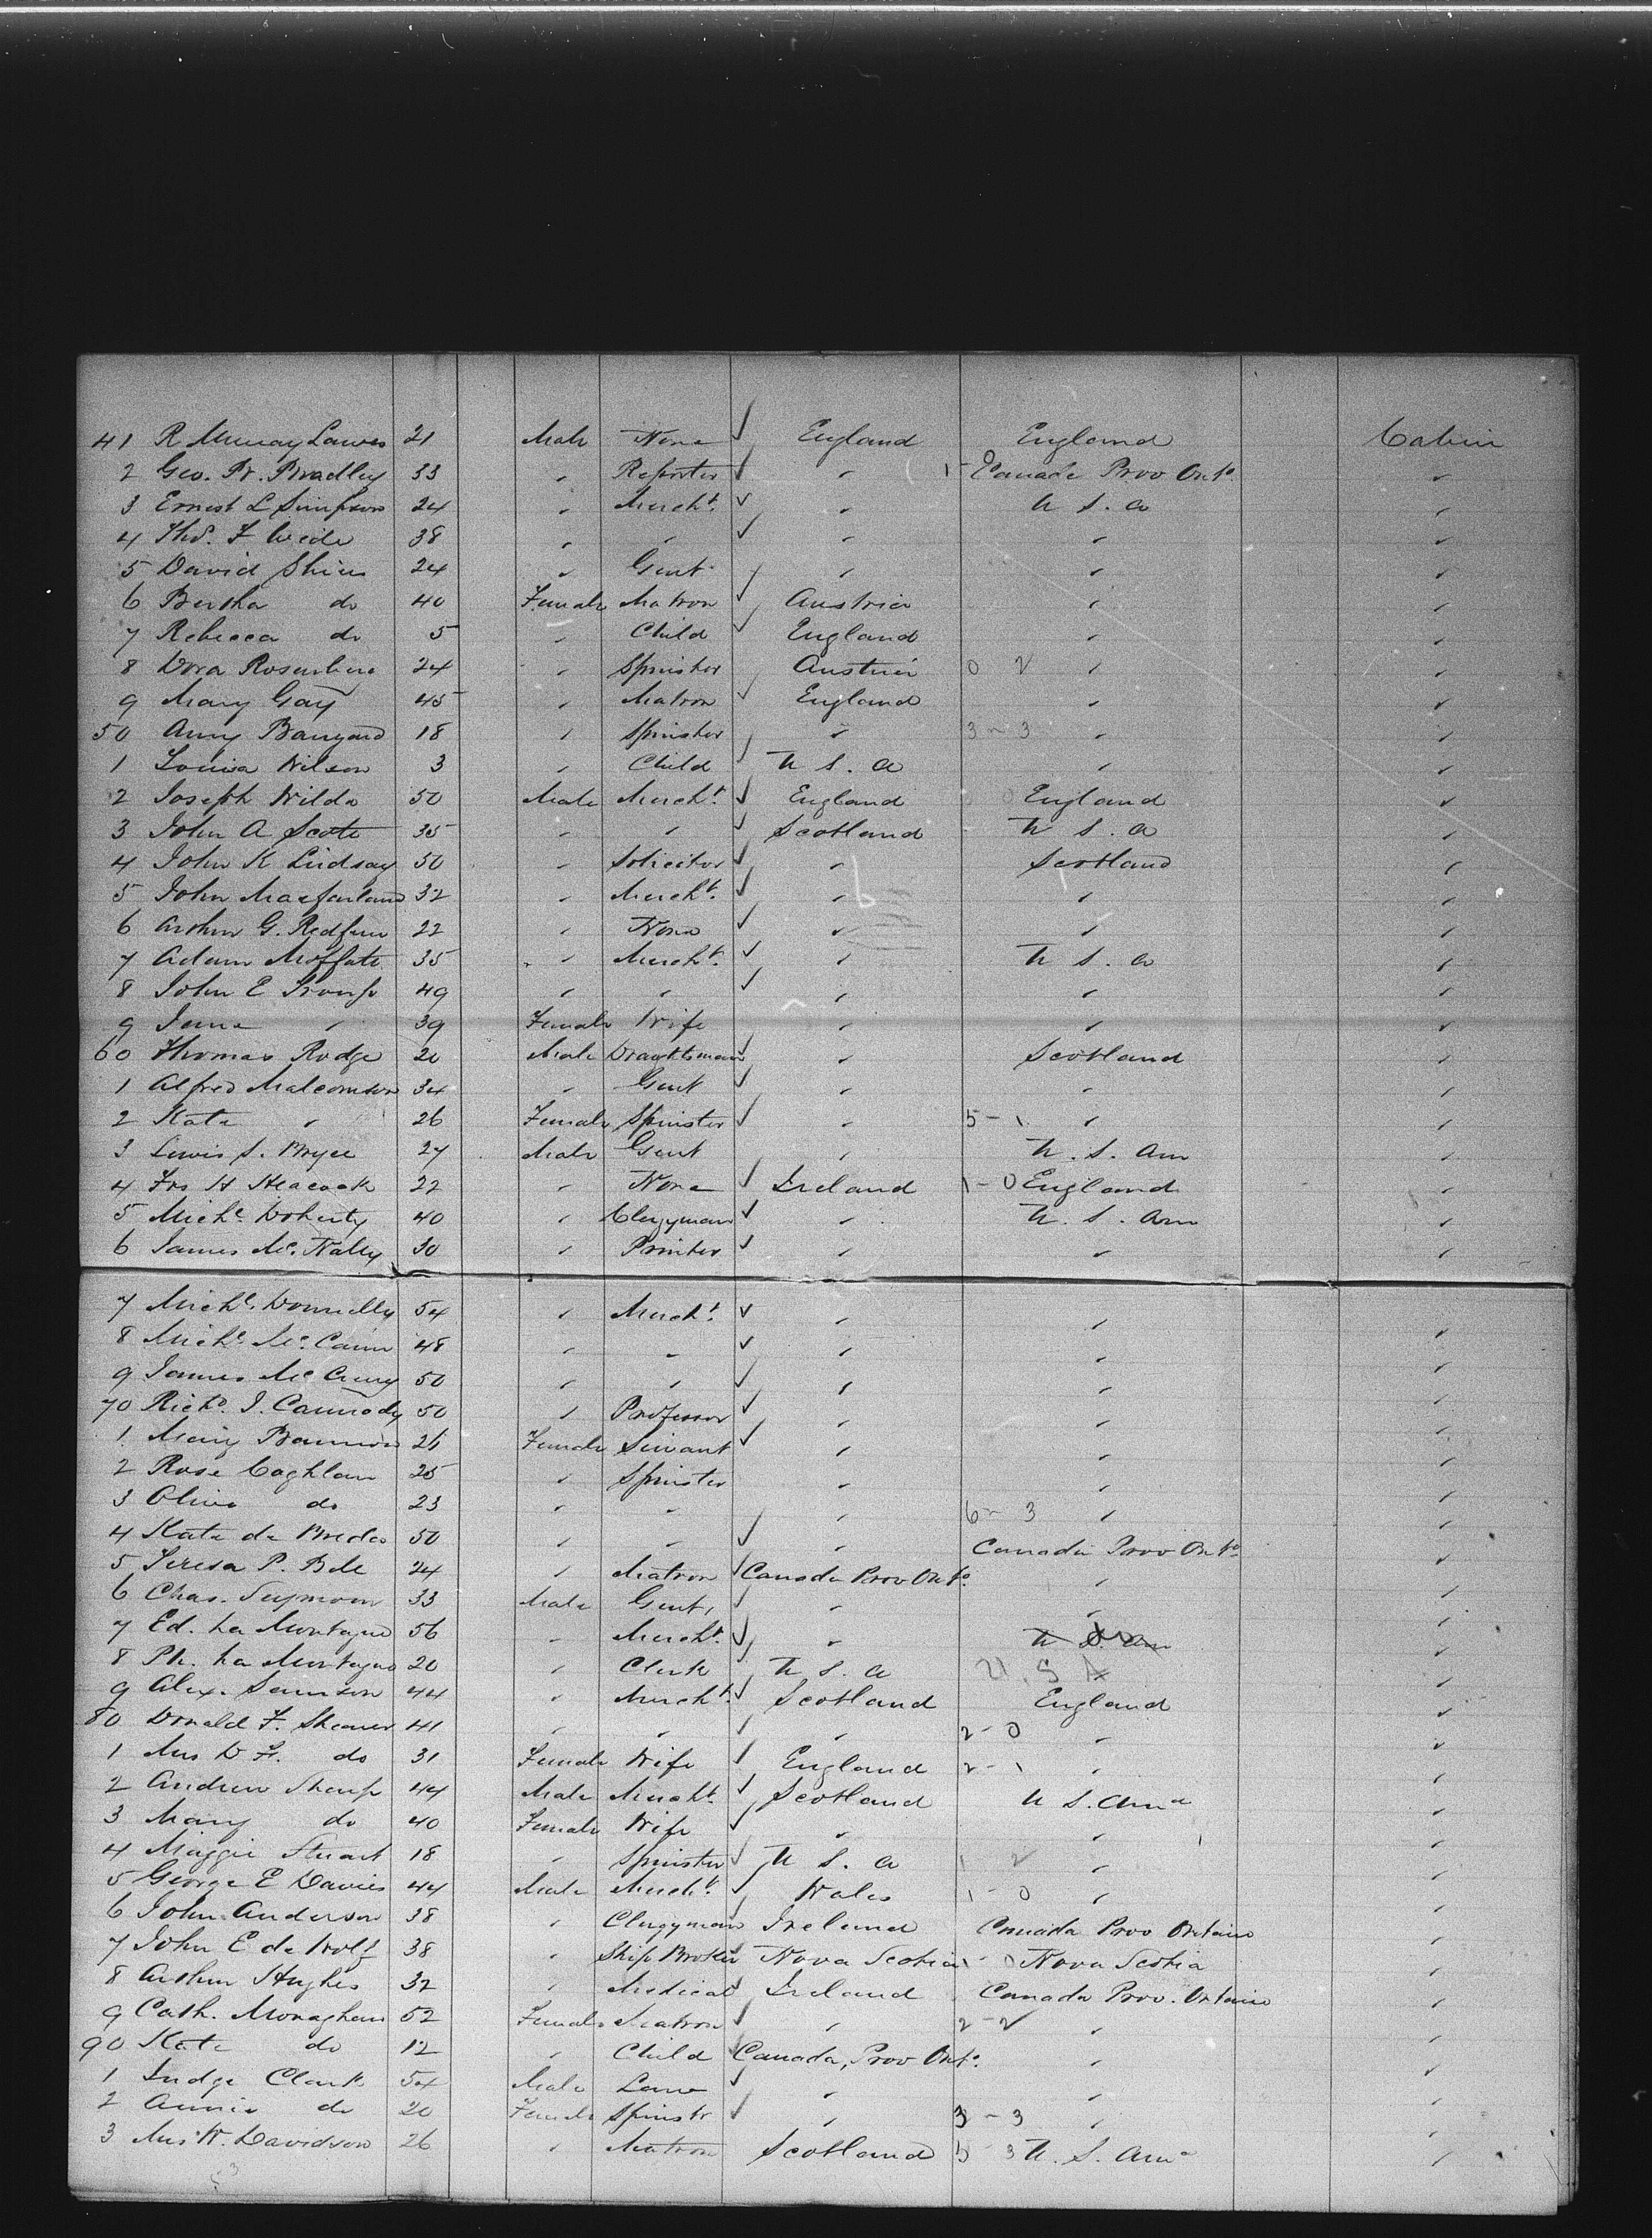 41 R Murray Lawes 21 Male None ✓ England England Cabin
2 Geo. W. Bradley 33 " Reporter ✓ " 1-0 Canada Prov Onto "
3 Ernest L Simpson 24 " Mercht. ✓ " U S. A "
4 Thos. F Weide 38 " " ✓ " " "
5 David Shier 24 " Gent " " "
6 Bertha do 40 Female Matron ✓ Austria " "
7 Rebecca do 5 " Child ✓ England " "
8 Dora 24 " Spinster Austria 0 2 " "
9 Mary Gay 45 " Matron ✓ England " "
50 Anny 18 " Spinster " 3-3 " "
1 Louisa Wilson 3 " Child ✓ U S. A " "
2 Joseph Wilde 50 Male Mercht. ✓ England England "
3 John A Scott 35 " " ✓ Scotland U S. A "
4 John K Lindsay 50 " Solicitor ✓ " Scotland "
5 John Macfarland 32 " Mercht. ✓ " " "
6 Arthur G. Redfern 22 " None ✓ " " "
7 Adam Moffatt 35 " Mercht. ✓ " U S. A "
8 John E 49 " " ✓ " " "
9 " 39 Female Wife " " "
60 Thomas Rodge 20 Male Draughtsman ✓ " Scotland "
1 Alfred Malcomson 34 " Gent ✓ " " "
2 Kate " 26 Female Spinster ✓ " 5-1 " "
3 Lewis S. Bryce 27 Male Gent " U. S. Am "
4 Frs H Heacock 22 " None ✓ Ireland 1-0 England "
5 Michl. Doherty 40 " Clergyman ✓ " U. S. Am "
6 James Mc. Nally 30 " Printer ✓ " " "
7 Michl. Donnelly 54 " Mercht. ✓ " " "
8 Michl. Mc. Cann 48 " " ✓ " " "
9 James Mc 50 " " ✓ " " "
70 Richd. J. Carmody 50 " Professor ✓ " " "
1 Mary 26 Female Servant ✓ " " "
2 Rose Coghlan 25 " Spinster " " "
3 Olive do 23 " " " 6-3 " "
4 Kate de Bredes 50 " " ✓ " Canada Prov Onto "
5 Teresa P. Bell 24 " Matron ✓ Canada Prov Onto. " "
6 Chas. Seymour 33 Male Gent, ✓ " " "
7 Ed. La Montagne 56 " Mercht. ✓ " U S. Am "
8 Ph. La Montagne 20 " Clerk U S. A U S A "
9 Alex. Samson 44 " Mercht. ✓ Scotland England "
80 Donald F. Shearer 41 " " ✓ " 2-0 " "
1 Mrs D F. do 31 Female Wife ✓ England 2-1 " "
2 Andrew Sharp 44 Male Mercht. ✓ Scotland U S. Ama "
3 Mary do 40 Female Wife ✓ " " "
4 Maggie Stuart 18 " Spinster ✓ U S. A 1 2 " "
5 George E Davies 44 Male Mercht. ✓ Wales 1-0 " "
6 John Anderson 38 " Clergyman Ireland Canada Prov Ontario "
7 John E de Wolf 38 " Ship Broker Nova Scotia 1-0 Nova Scotia "
8 Arthur Hughes 32 " Medical ✓ Ireland Canada Prov. Ontario "
9 Cath. Monaghan 52 Female Matron ✓ " 2-2 " "
90 Kate do 12 " Child ✓ Canada, Prov Onto. " "
1 Judge Clark 54 Male Law ✓ " " "
2 Annie do 20 Female Spinstr ✓ " 3-3 " "
3 Mrs W. Davidson 26 " Matron Scotland 5 3 U. S. Ama "
53